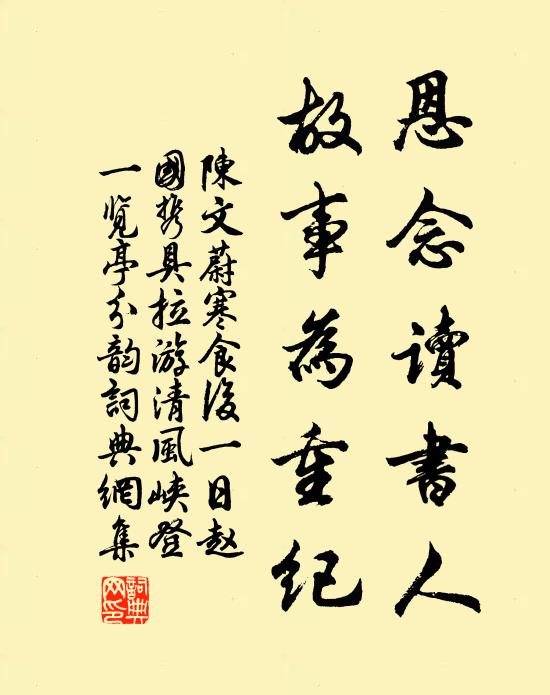 恩念讀書人
故事為重紀
陳文蔚寒食後一日赵
國携具拉游清風峡登
一覽亭分韵詞典網集
詞典网印